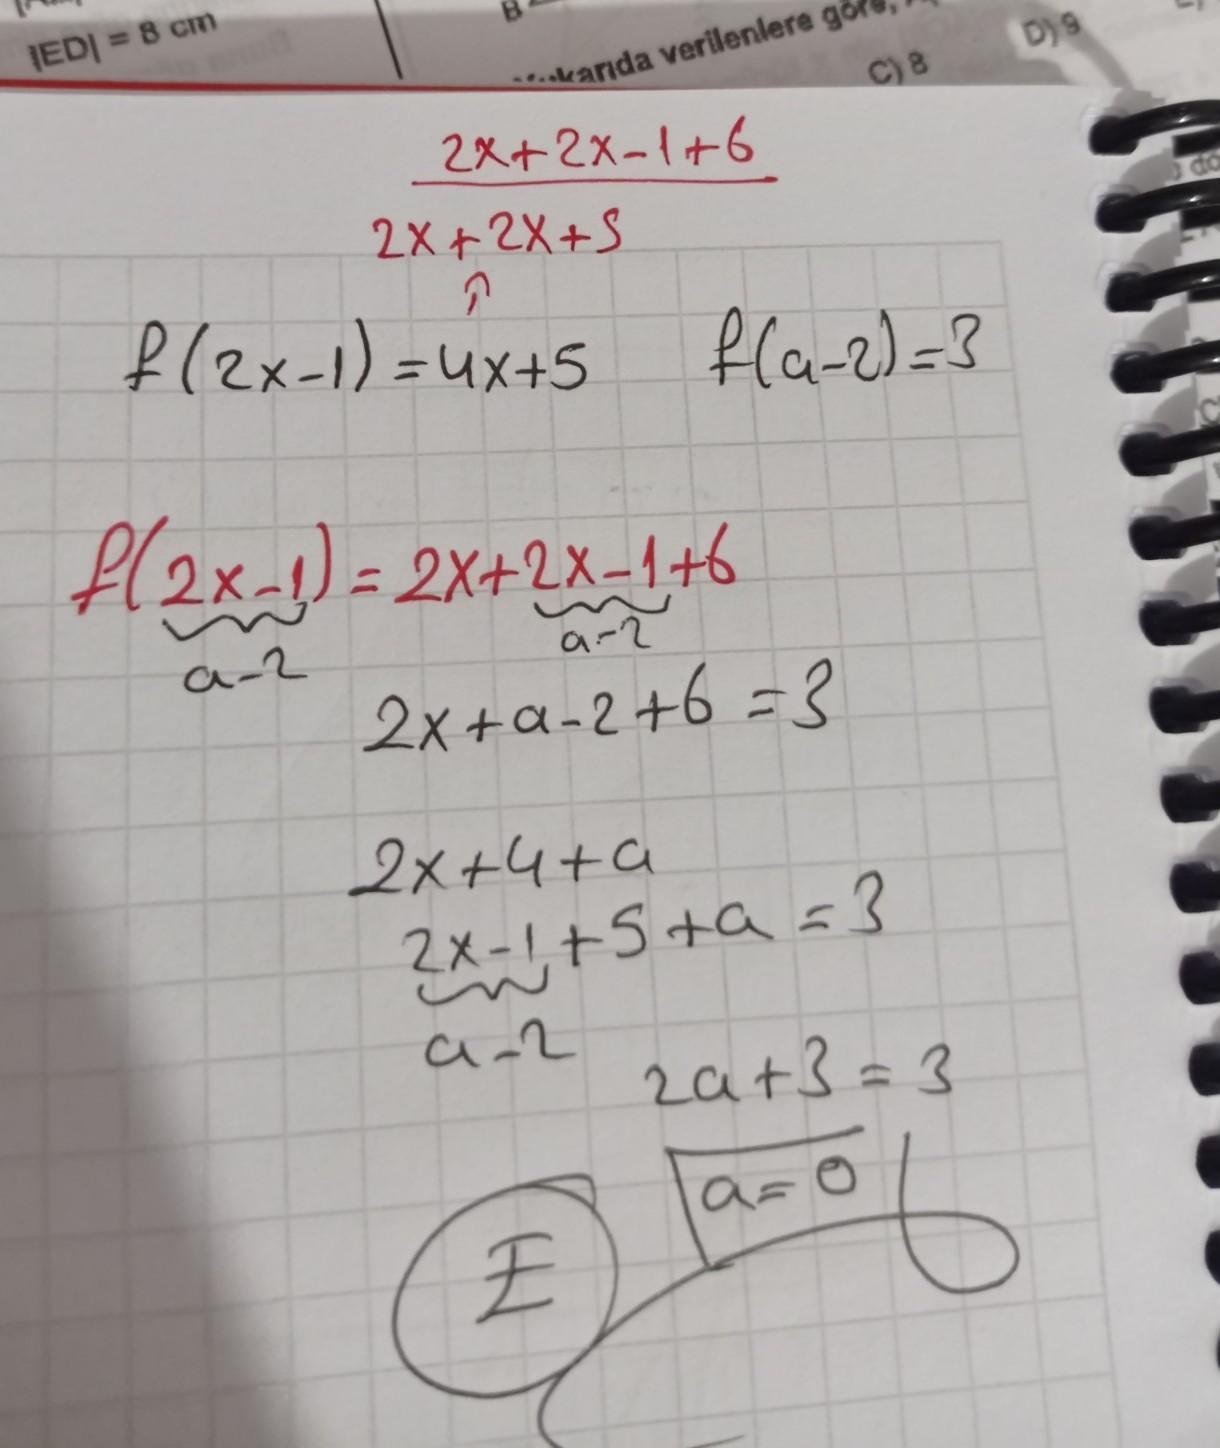 |ED| = 8 cm
B
verilenlere göre,
C) 8
D) 9
2x+2x-1+6
2x+2x+5
f(2x-1)=4x+5 f(a-2)=3
f(2x-1)=2x+2x-1+6
a-2 a-2
2x+a-2+6=3
2x+4+a
2x-1+5+a=3
a-2
2a+3=3
a=0
E